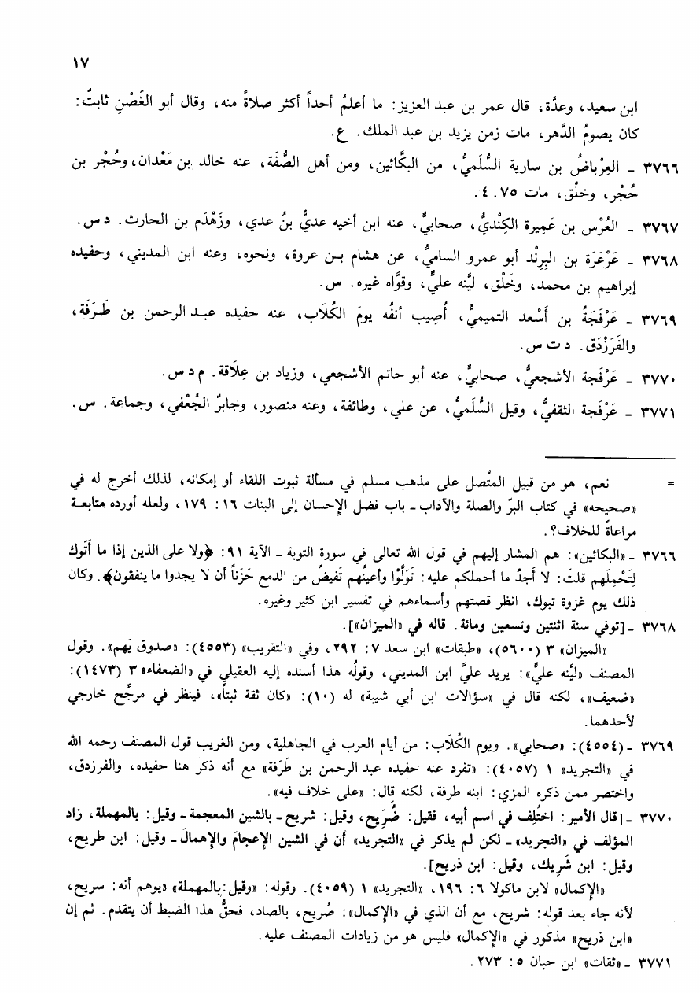 ١٧
ابن سعيد، وعدَّة، قال عمر بن عبد العزيز: ما أعلمُ أحداً أكثر صلاةً منه، وقال أبو الغُصْنِ ثابتٌ:
كان يصومُ الدَّهر، مات زمن يزيد بن عبد الملك. ع.
٣٧٦٦ - العِرْباضُ بن سارية السُّلَميُّ، من البكَّائين، ومن أهل الصُّفَّة، عنه خالد بن مَعْدان، وحُجْر بن
حُجْر، وخلْق، مات ٧٥. ٤.
٣٧٦٧ - العُرْس بن عَمِيرة الكِنْديُّ، صحابيٌّ، عنه ابن أخيه عديُّ بنُ عدي، وزَهْدَم بن الحارث. د س.
٣٧٦٨ - عَرْعَرَة بن البِرِنْد أبو عمرو الساميُّ، عن هشام بن عروة، ونحوه، وعنه ابن المديني، وحفيده
إبراهيم بن محمد، وخَلْق، ليَّنه عليٌّ، وقوَّاه غيره. س.
٣٧٦٩ - عَرْفَجَةُ بن أَسْعد التميميُّ، أُصيب أنفُه يومَ الكُلَاب، عنه حفيده عبد الرحمن بن طَرَفَة،
والفَرَزْدَق. د ت س.
٣٧٧٠ - عَرْفجة الأشجعيُّ، صحابيٌّ، عنه أبو حاتم الأشجعي، وزياد بن عِلَاقة. م د س.
٣٧٧١ - عَرْفجة الثقفيُّ، وقيل السُّلَميُّ، عن علي، وطائفة، وعنه منصور، وجابرٌ الجُعْفي، وجماعة. س.
= نعم، هو من قبيل المتَّصل على مذهب مسلم في مسألة ثبوت اللقاء أو إمكانه، لذلك أخرج له في
«صحيحه» في كتاب البرّ والصلة والآداب - باب فضل الإحسان إلى البنات ١٦: ١٧٩، ولعله أورده متابعة
مراعاةً للخلاف؟.
٣٧٦٦ - «البكائين»: هم المشار إليهم في قول الله تعالى في سورة التوبة - الآية ٩١: ﴿ولا على الذين إذا ما أتَوك
لِتَحْمِلَهم قلتَ: لا أجدُ ما أحملكم عليه: تَوَلَّوْا وأعينُهم تَفيضُ من الدمع حَزَناً أن لا يجدوا ما ينفقون﴾. وكان
ذلك يوم غزوة تبوك، انظر قصتهم وأسماءهم في تفسير ابن كثير وغيره.
٣٧٦٨ - [توفي سنة اثنتين وتسعين ومائة. قاله في «الميزان»].
«الميزان» ٣ (٥٦٠٠)، «طبقات» ابن سعد ٧: ٢٩٢، وفي «التقريب» (٤٥٥٣): «صدوق يَهِم». وقول
المصنف «ليَّنه عليٌّ»: يريد عليَّ ابن المديني، وقولُه هذا أسنده إليه العقيلي في «الضعفاء» ٣ (١٤٧٣):
«ضعيف»، لكنه قال في «سؤالات ابن أبي شيبة» له (١٠): «كان ثقة ثبتاً»، فينظر في مرجِّح خارجي
لأحدهما.
٣٧٦٩ - (٤٥٥٤): «صحابي». ويوم الكُلَاب: من أيام العرب في الجاهلية، ومن الغريب قول المصنف رحمه الله
في «التجريد» ١ (٤٠٥٧): «تفرد عنه حفيده عبد الرحمن بن طَرَفة» مع أنه ذكر هنا حفيده، والفرزدق،
واختصر ممن ذكره المزي: ابنه طرفة، لكنه قال: «على خلاف فيه».
٣٧٧٠ - [قال الأمير: اختُلِف في اسم أبيه، فقيل: ضُرَيح، وقيل: شريح - بالشين المعجمة - وقيل: بالمهملة، زاد
المؤلف في «التجريد» - لكن لم يذكر في «التجريد» أن في الشين الإعجامَ والإهمالَ - وقيل: ابن طريح،
وقيل: ابن شَريك، وقيل: ابن ذريح].
«الإكمال» لابن ماكولا ٦: ١٩٦، «التجريد» ١ (٤٠٥٩). وقوله: «وقيل: بالمهملة» يوهم أنه: سريح،
لأنه جاء بعد قوله: شريح، مع أن الذي في «الإكمال»: صُريح، بالصاد، فحقُّ هذا الضبط أن يتقدم. ثم إن
«ابن ذريح» مذكور في «الإكمال» فليس هو من زيادات المصنف عليه.
٣٧٧١ - «ثقات» ابن حبان ٥: ٢٧٣.